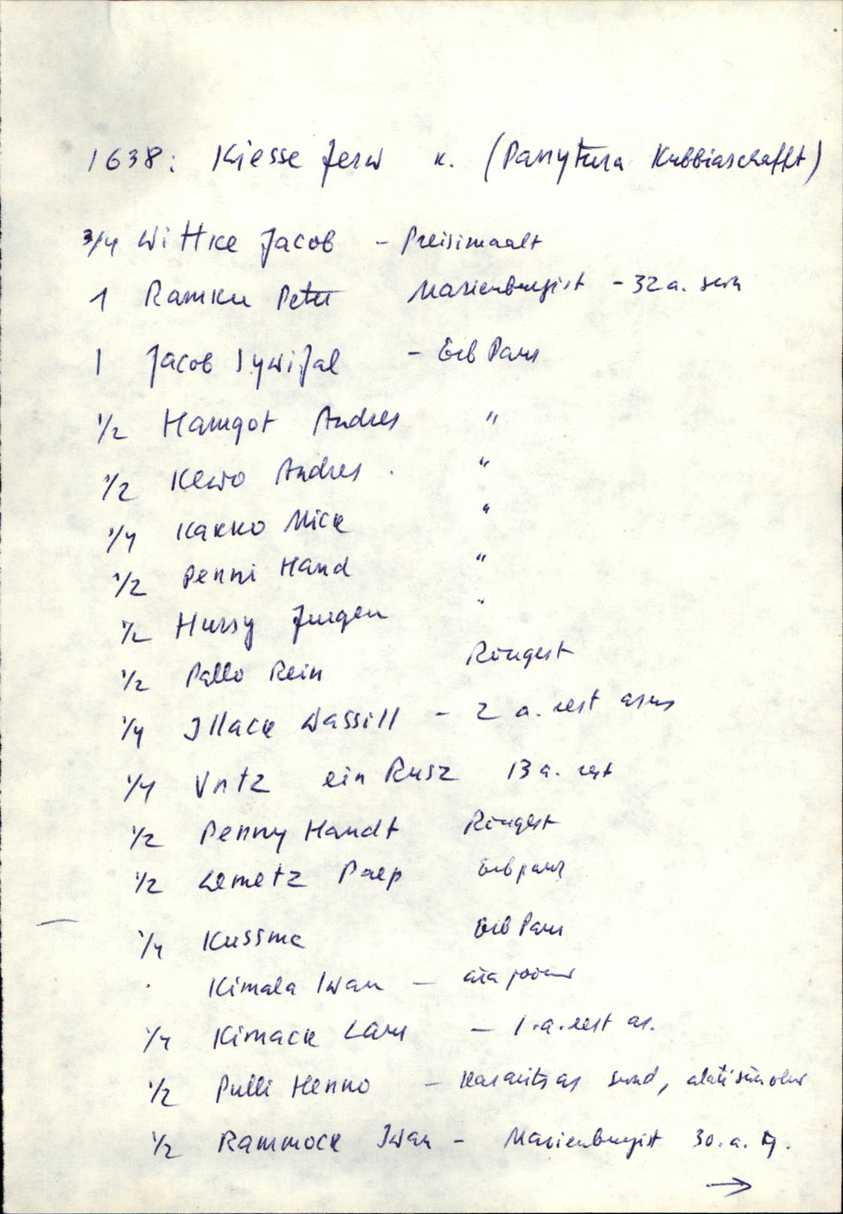 1638: Kiesse Jerw k. (Pannytura Kubbiaschafft)
3/4 Wittke Jacob - Preisimaalt
1 Ramku Peter Marienburgist - 32 a. siin
1 Jacob - Erb Paur
1/2 Hamgot Andres "
1/2 Klewo Andres "
1/4 Kakko Mick "
1/2 Penni Hand "
1/2 Hursy Jurgen "
1/2 Pallo Rein Röugest
1/4 Illack Wassill - 2 a. eest asus
1/4 Vntz ein Rusz 13 a. eest
1/2 Penny Handt Röugest
1/2 Lemetz Paep Erbpaur
1/4 Kussma Erb Paur
Kimala Iwan - ära
1/4 Kimack Laur - 1. a. eest as.
1/2 Pulli Henno - sünd, alati siin olnud
1/2 Rammock Iwan - Marienburgist 30. a. t.
→